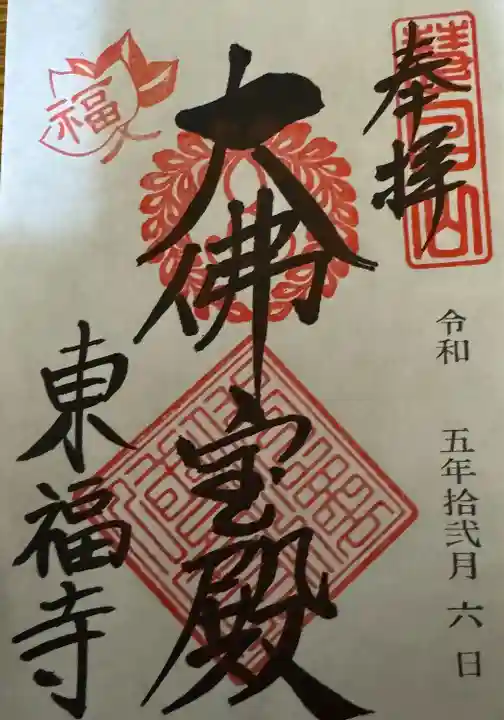 奉拝
令和 五年拾弐月 六 日
大佛宝殿
東福寺
福